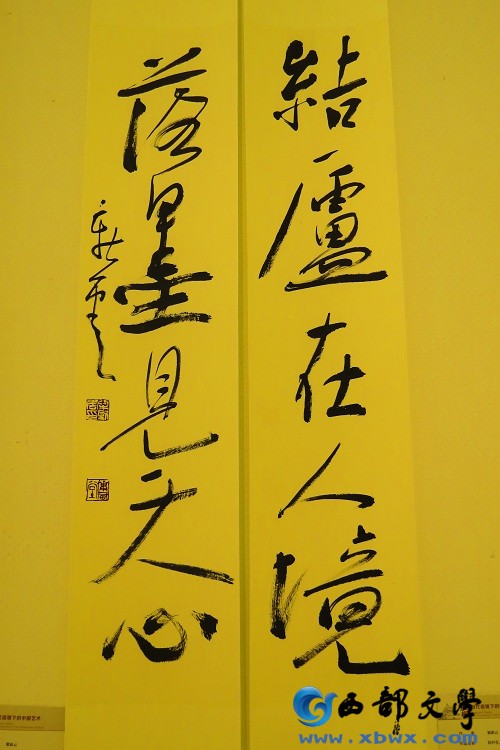 結廬在人境
落墨見天心
西部文學
www.xbwx.com